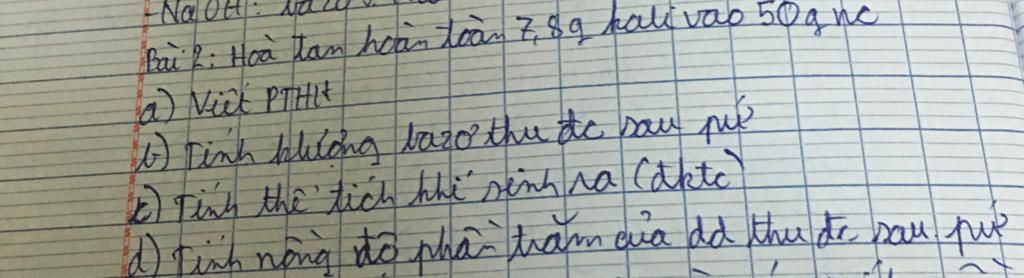 - NaOH:
Bài 2: Hoà tan hoàn toàn 7,8g kali vào 50g nc
a) Viết PTHH
b) Tính klượng bazơ thu đc sau pứ
c) Tính thể tích khí sinh ra (đktc)
d) Tính nồng độ phần trăm của dd thu đc sau pứ